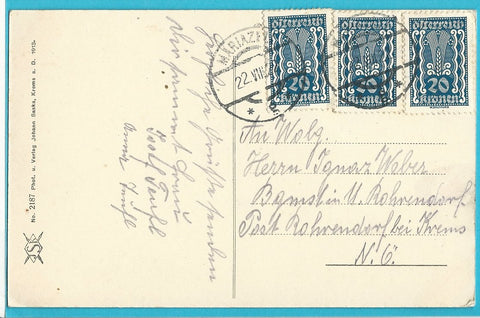 Österreich
20
Kronen
Österreich
20
Kronen
Österreich
20
Kronen
MARIAZELL
22.VII
An Wolg.
Herrn Ignaz Weber
Bgmst. in U. Rohrendorf
Post Rohrendorf bei Krems
N.Ö.
Herzliche Grüße senden
No. 2187 Phot. u. Verlag Johann Sekks, Krems a. D. 1913.